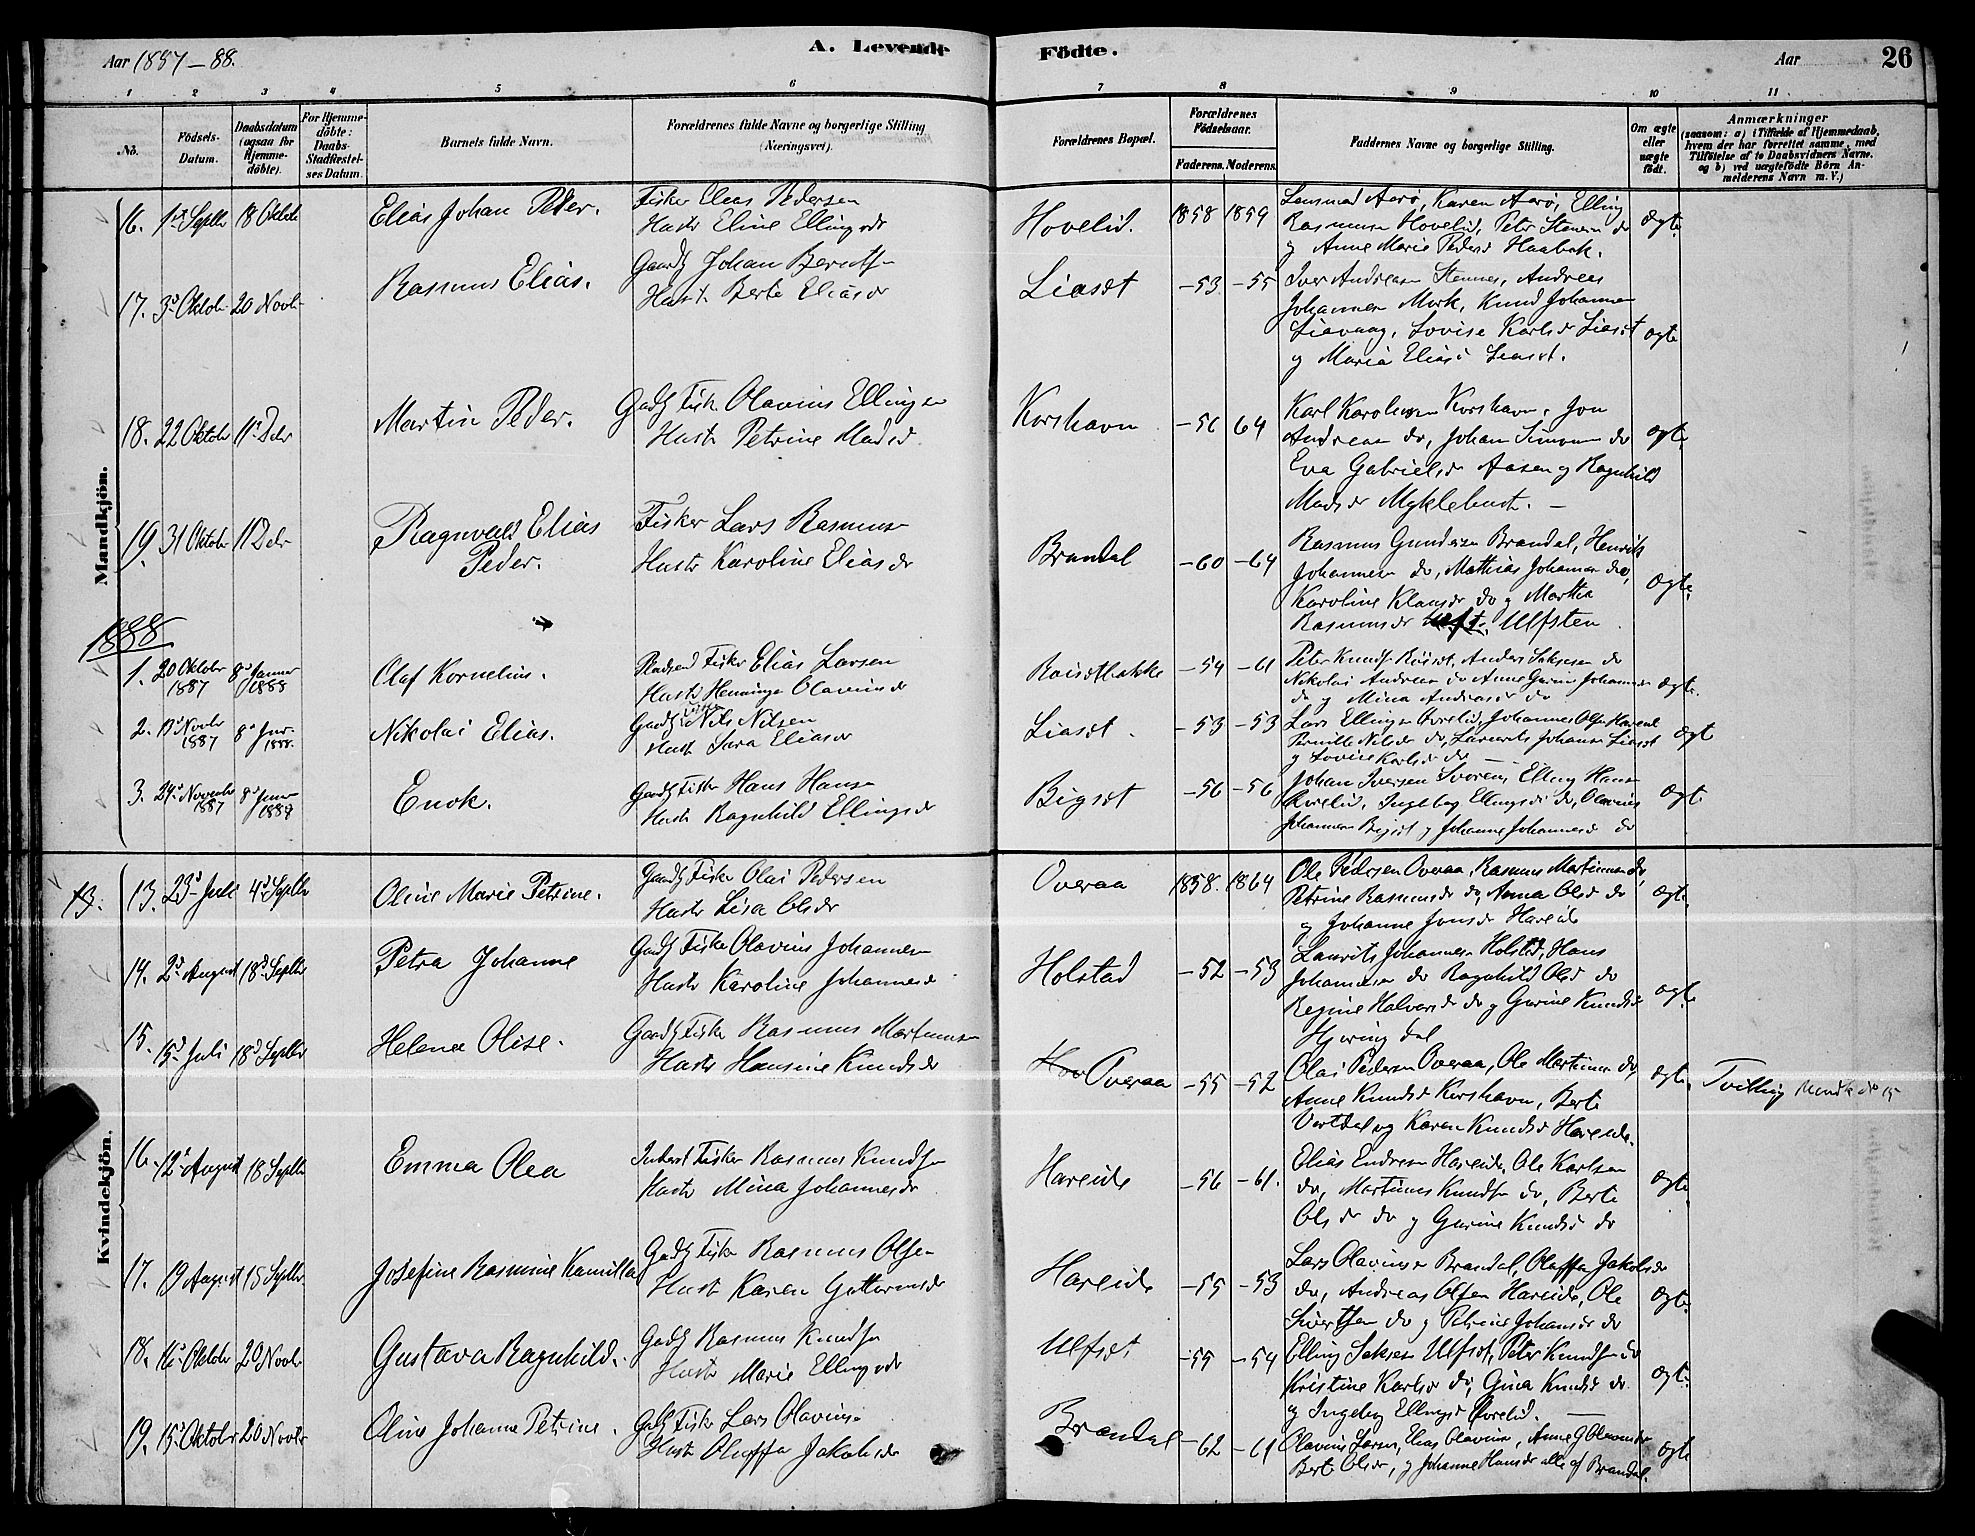 Aar 1887-88.
A. Levende Födte.
Aar 26
1 2 3 4 5 6 7 8 9 10 11
No.
Födsels-Datum.
Daabsdatum (ogsaa for Hjemme-döbte).
For Hjemme-döbte: Daabs-Stadfæstel-ses Datum.
Barnets fulde Navn.
Forældrenes fulde Navne og borgerlige Stilling (Næringsvei).
Forældrenes Bopæl.
Forældrenes Födselsaar.
Faderens. Moderens.
Faddernes Navne og borgerlige Stilling.
Om ægte eller uægte födt.
Anmærkninger
(saasom: a) i Tilfælde af Hjemmedaab, hvem der har forrettet samme, med Tilföielse af to Daabsvidners Navne. og b) ved uægtefödte Börn An-melderens Navn m. V.)
Mandkjön.
16. 1st Septbr 18 Oktobr Elias Johan Peder. Fisker Elias Pedersen
Hustr Eline Ellingsdr
Hovelid. 1858 1859 Lensmand Aarø, Karen Aarø, Elling
Rasmusen Hovelid, Peter
og Anne Marie Pedersd ægte
17. 3d Oktobr 20 Novbr Rasmus Elias. Gaardb Johan Berntsen
Hustr Berte Eliasdr
Liaset -53 -55 Iver Andreasen Stennes, Andreas
Johannesen Mork, Knud Johannesen
Liavaag, Lovise Karlsdr Liaset
og Maria Eliasd Liaset. ægte
18. 22 Oktobr 11 Debr Martin Peder. Gaardb Fisker Olavius Ellingsen
Hustr Petrine Madsd.
Korshavn -56 64 Karl Karolusen Korshavn, Jon
Andreasen do, Johan Simonsen do
Eva Gabrielsdr Aasen og Ragnhild
Madsdr Myklebust. — ægte
19. 31 Oktobr 11 Debr Ragnvald Elias
Peder.
Fisker Lars Rasmusen
Hustr Karoline Eliasdr
Brandal -60 -64 Rasmus Gundersen Brandal, Henrik
Johannesen do, Mathias Johansen do,
Karoline Klausdr do og Martha
Rasmusdr Ulfsten ægte.
1888
1. 20 Oktobr 1887 8d Januar 1888 Olaf Kornelius. Pladsmd Fisker Elias Larsen
Hustr Henninge Olavusdr
Roisetbakke -54 -61 Peter Knuds Röiset, Anders Saksesen do
Nikolai Andreasen do Anne Gurine Johannesdr
do og Mina Andreasdr do ægte.
2. 13 Novbr 1887 8d Jnr. 1888. Nikolai Elias. Gaardb Fisker Nils Nilsen
Hustr Sara Eliasdr
Liaset. -53 -53 Lars Ellingsen Hovelid, Johannes Olsen Hareide
Pernille Nilsdr do, Laurits Johansen Liaset
og Lovise Karlsdr do — ægte
3. 24d Novembr 1887 8d Januar 1888 Enok. Gaardb Fisker Hans Hansen
Hustr Ragnhild Ellingsdr
Bigset -56 -56 Johan Iversen Svorens Elling Hansen
Hovelid. Ingeborg Ellingsdr do, Olavius
Johannesen Bigset og Johanne Johannesdr do ægte.
Kvindekjön.
13. 13. 23d Juli 4d Septbr Oline Marie Petrine. Gaardb Fisker Olai Pedersen
Hustr Lisa Olsdr
Overaa 1858. 1864 Ole Pedersen Overaa, Rasmus Martinusen do,
Petrine Rasmusdr do, Anna Olsdr do
og Johanne Jonsdr Hareide ægte.
14. 2d August 18d Septbr Petra Johanne Gaardb Fisker Olavius Johannesen
Hustr Karoline Johannesdr
Holstad -52 -53 Laurits Johannesen Holstad, Hans
Johannesen do Ragnhild Olsd do
Regine Halvarsdr do og Gurine Knudsd
Hjöringdal ægte
15. 15d Juli 18d Septbr Helena Olise. Gaardb Fisker Rasmus Martinusen
Hustr Hansine Knudsdr
Hov Overaa -55 -52 Olai Pedersen Overaa, Ole Martinusen do,
Anne Knudsd Korshavn, Berte
Vartdal og Karen Knudsd Hareide. ægte. Tvilling Mandk No 15
16. 12d August 18 Septbr Emma Olea Inderst Fisker Rasmus Knudsen
Hustr Mina Johannesdr
Hareide -56 -61. Elias Endresen Hareide, Ole Karlsen
do, Martinus Knudsen do, Berte
Olsdr do og Gurine Knudsd do ægte.
17. 19 August 15 Septbr Josefine Rasmine Kamilla Gaardb Fisker Rasmus Olsen
Hustr Karen Guttormsdr
Hareide -55 -53 Lars Olavusen Brandal, Oluffa Jakobsdr
do, Andreas Olsen Hareide, Ole
Sivertsen do og Petrine Johansdr do ægte.
18. 16d Oktobr 20 Novbr Gustava Ragnhild. Gaardb Rasmus Knudsen
Hustr Marie Ellingsdr
Ulfset -55 -54 Elling Saksesen Ulfset, Peter Knudsen do
Kristine Karlsdr do, Gina Knudsd do
og Ingeborg Ellingsd Hovelid. — ægte.
19. 15d Oktobr 20 Novbr Oline Johanne Petrine. Gaardb Fisker Lars Olavusen
Hustr Oluffa Jakobsdr
Brandal -62 -61 Olavius Larsen, Elias Olavusen, Anne G Olavusdr
Berte Olsdr, og Johanne Hansdr alle af Brandal. ægte